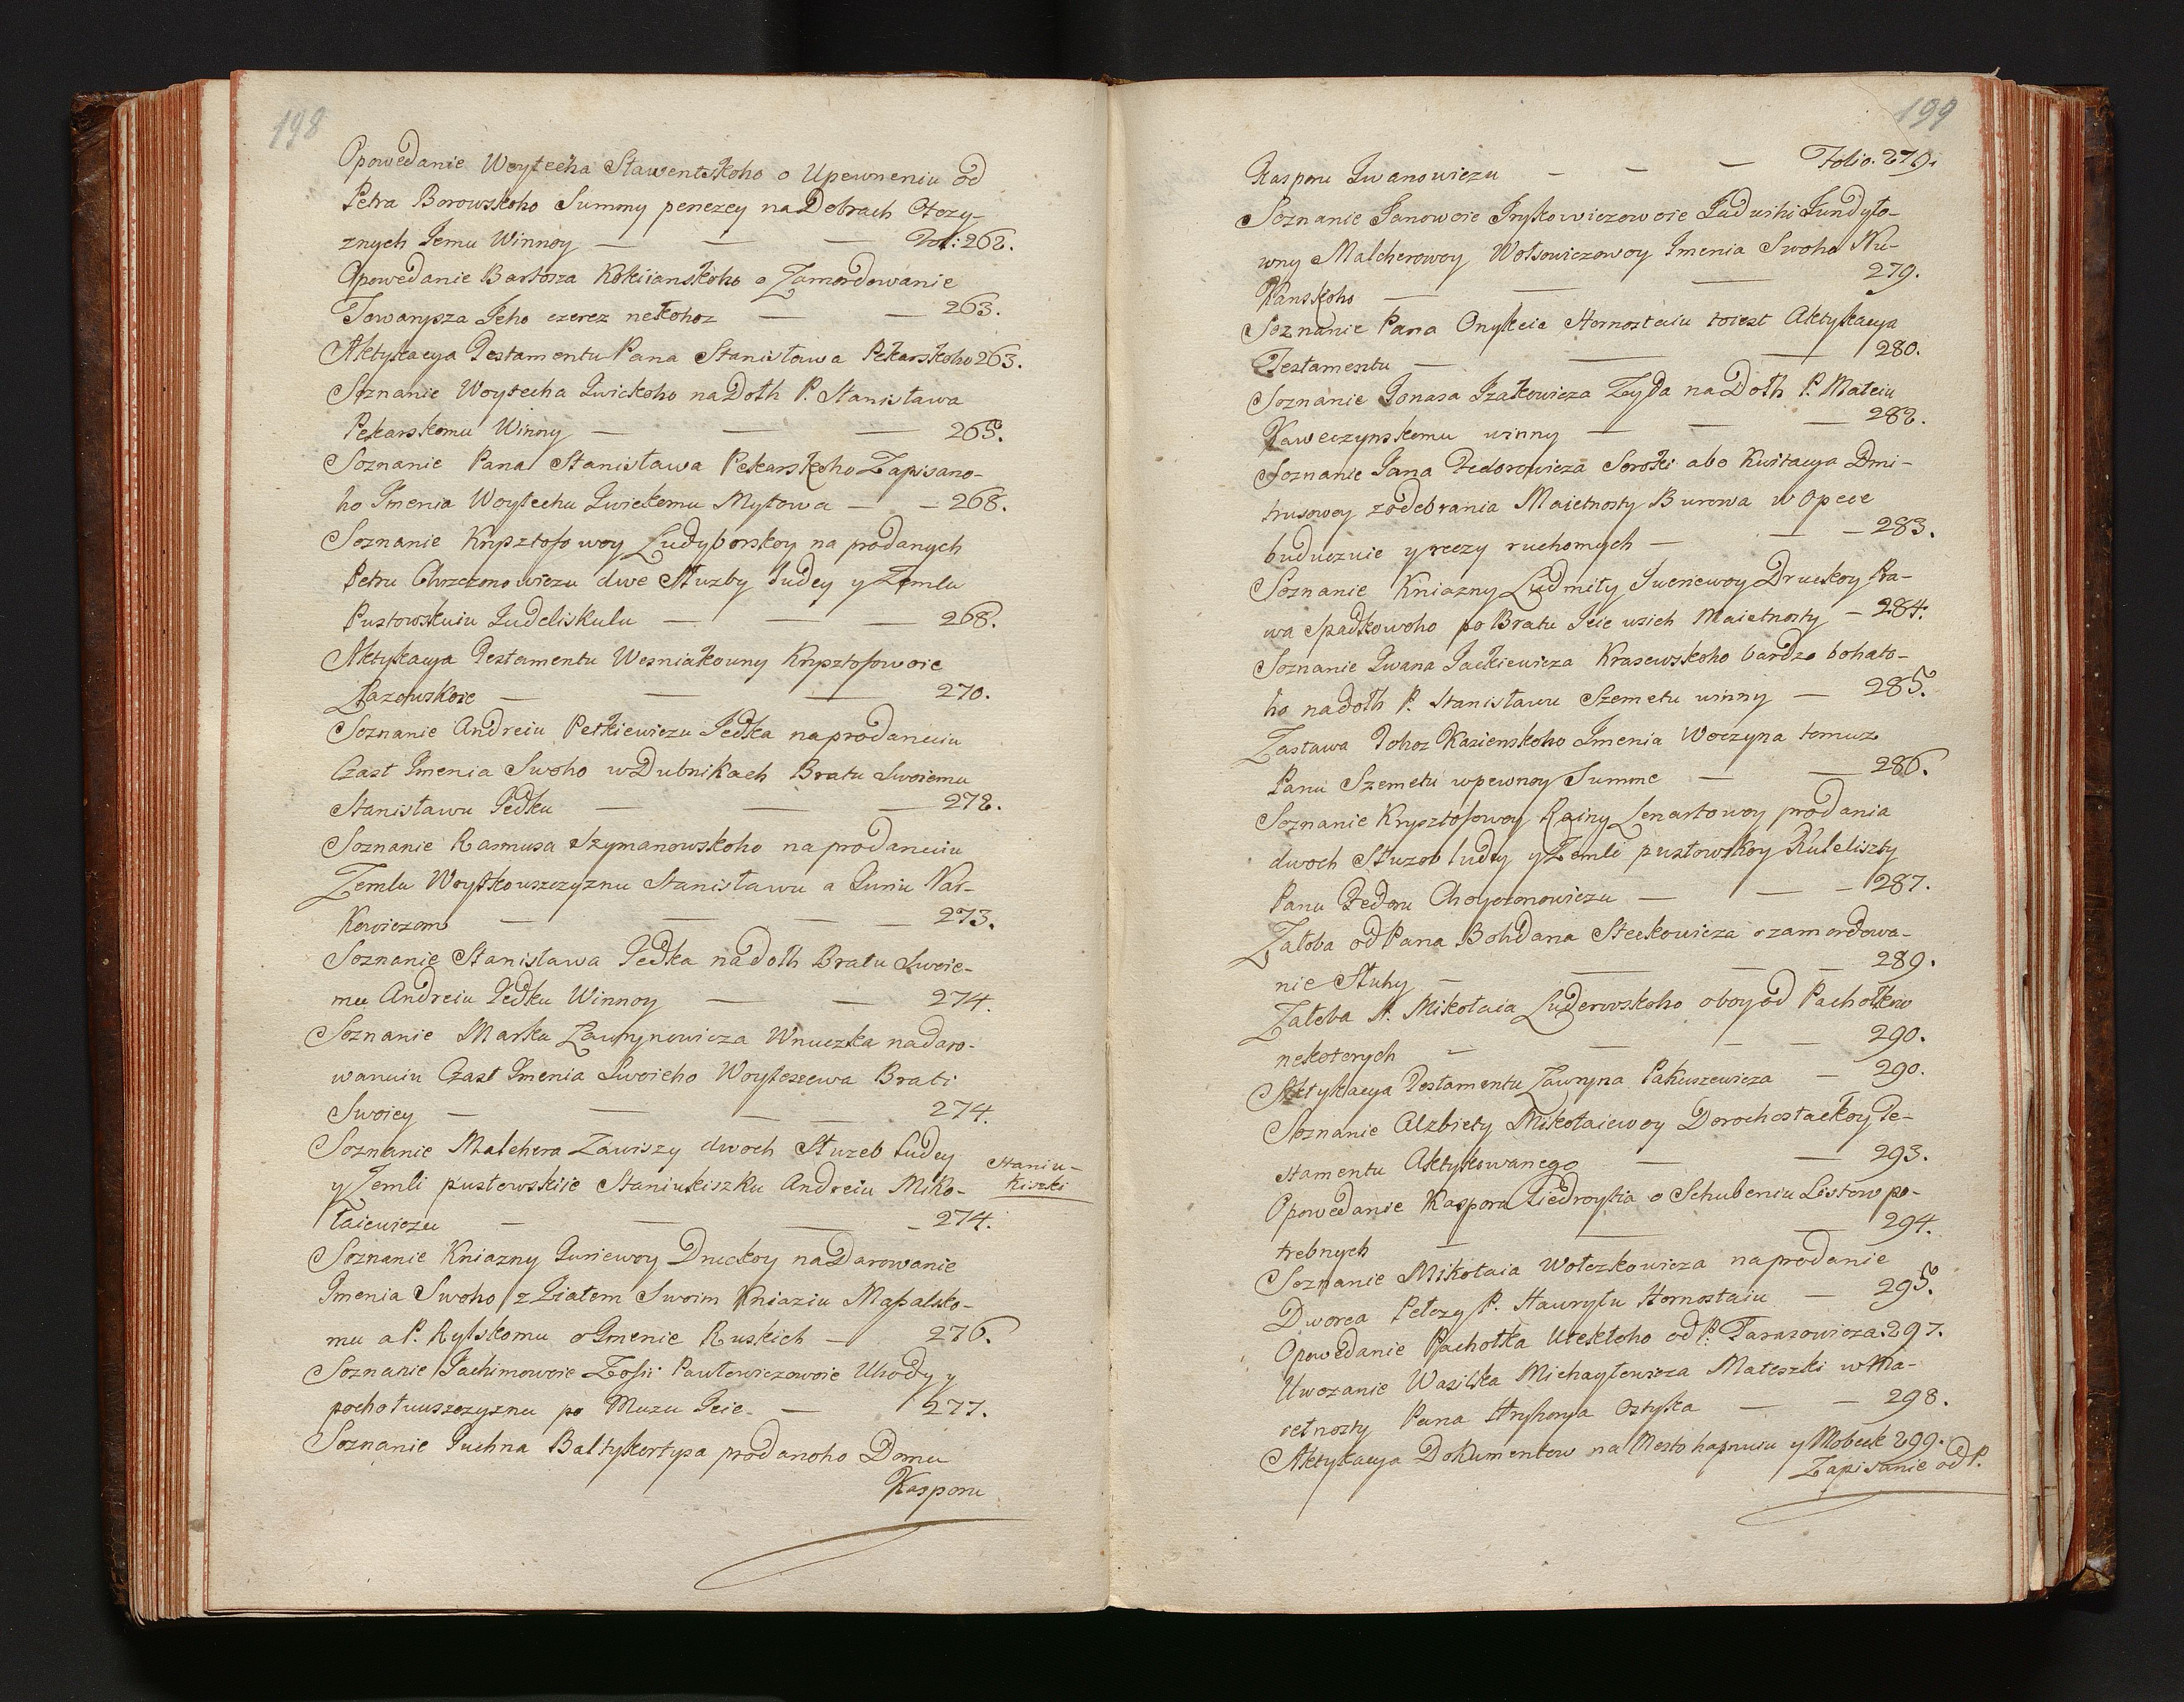 198
Opowedanie Woytecha Sławentskoho o Upewneniu od
Petra Borowskoho Summy penezey na Dobrach Otczy-
znych Jemu Winnoy — — — Fol: 262.
Opowedanie Bartosza Kokiianskoho o Zamordowanie
Towarysza Jeho czerez nekohoz — — 263.
Aktykacya Testamentu Pana Stanisława Pekarskoho 263.
Soznanie Woytecha Zwickoho na Dołh P. Stanisława
Pekarskomu Winny — — — 265.
Soznanie Pana Stanisława Pekarskoho Zapisano-
ho Jmenia Woytechu Zwickemu Mytowa — — 268.
Soznanie Krysztofowoy Ludyborskoy na prodanych
Petru Chrzczonowiczu dwe Służby Ludey y Zemlu
Pustowskuiu Ludeliskulu — — — 268.
Aktykacya Testamentu Wesniakowny Krysztofowoie
Łazowskoie — — — 270.
Soznanie Andreiu Petkiewiczu Jedka na prodanuiu
Czast Jmenia Swoho w Dubnikach Bratu Swoiemu
Stanisławu Jedku — — — 272.
Soznanie Rasmusa Szymanowskoho na prodanuiu
Zemlu Woytkowszczyznu Stanisławu a Juriu Nar-
kowiczom — — — — 273.
Soznanie Stanisława Jedka na dołh Bratu Swoie-
mu Andreiu Jedku Winnoy — — 274.
Soznanie Marka Ławrynowicza Wnuczka na daro-
wanuiu Czast Jmenia Swoieho Woyteszewa Brati
Swoiey — — — 274.
Soznanie Malchera Zawiszy dwoch Służeb Ludey
y Zemli pustowskiie Staniukiszku Andreiu Miko-
łaiewiczu — — — — 274.
Staniu-
kiszki
Soznanie Kniazny Juriewoy Druckoy na Darowanie
Jmenia Swoho z Ziatem Swoim Kniaziu Masalsko-
mu a P. Rylskomu o Jmenie Ruskich — 276.
Soznanie Jachimowoie Zofii Pawłowiczowoie Uhody y
pochołuuszczyznu po Mużu Jeie — 277.
Soznanie Juchna Baltykortysa prodanoho Domu
Kasporu
199
Kasporu Jwanowiczu — — — Folio. 279.
Soznanie Janowoie Jryskowiczowoie Hadwihi Jundyło-
wny Malcherowoy Wołłowiczowoy Jmenia Swoho Nu-
Wanskoho — — — 279.
Soznanie Pana Onykeie Hornostaiu toiest Aktykacya
Testamentu — — — 280.
Soznanie Jonasa Jzakowicza Żyda na Dołh P. Mateiu
Kaweczynskomu winny — — — 282.
Soznanie Jana Fedorowicza Soroki abo Kwitacya Dmi-
trusowoy z odebrania Maietnosty Burowa w Opece
buduczuie y reczy ruchomych — — — 283.
Soznanie Kniazny Ludmiły Jueriewoy Druckoy Pra-
wa Spadkowoho po Bratu Jeie wsich Maietnosty — 284.
Soznanie Jwana Jackiewicza Krasewskoho bardzo bohato-
ho na dołh P. Stanisławu Szemetu winny — 285.
Zastawa Tohoz Kasienskoho Jmenia Woczyna tomuz
Panu Szemetu w pewnoy Summe — — 286.
Soznanie Krysztofowoy Rainy Lenartowoy prodania
dwoch Służob ludey y Zemli pustowskoy Kuleliszty
Panu Fedoru Chołoponowiczu — — — 287.
Żałoba od Pana Bohdana Steckowicza o zamordowa-
nie Słuhy — — — — 289.
Żałoba P. Mikołaia Luderowskoho o boy od Pachołkow
nekotorych — — — — 290.
Aktykacya Testamentu Ławryna Pakuszewicza — 290.
Soznanie Alzbiety Mikołaiewoy Dorochostackoy Te-
stamentu Aktykowanego — — 293.
Opowedanie Kaspora Giedroytia o Schubeniu Listow po-
trebnych — — — 294.
Soznanie Mikołaia Wołczkowicza na prodanie
Dworca Pełczy P. Hawryłu Hornostaiu — 295.
Opowedanie Pachołka Utekłoho od P. Tarasowicza. 297.
Uwezanie Wasilka Michayłowicza Mateszki w Ma-
ietnosty Pana Hryhorya Ostyka — — 298.
Aktykacya Dokumentow na Mesto hapnuiu y Mobeek 299.
Zapisanie od P.